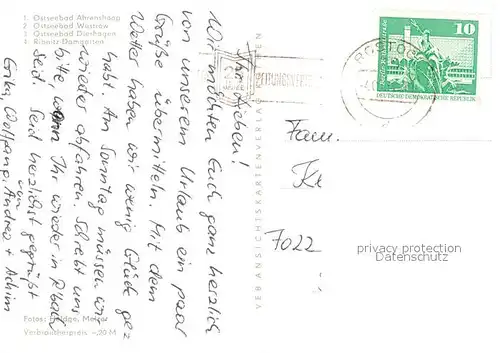 1. Ostseebad Ahrenshoop
2. Ostseebad Wustrow
3. Ostseebad Dierhagen
4. Ribnitz-Damgarten
Ihr Lieben!
Wir möchten Euch ganz herzlich
von unserem Urlaub ein paar
Grüße übermitteln. Mit dem
Wetter haben wir wenig Glück ge-
habt. Am Sonntag müssen wir
wieder abfahren. Schreibt uns
bitte, wann Ihr wieder in
seid. Seid herzlichst gegrüßt
von
Erika, Wolfgang, Andrea + Achim
Fotos:
Verbraucherpreis -,20 M
VEB ANSICHTSKARTENVERLAG
ROSTOCK
10
DEUTSCHE DEMOKRATISCHE REPUBLIK
Fam.
7022
privacy protection
Datenschutz